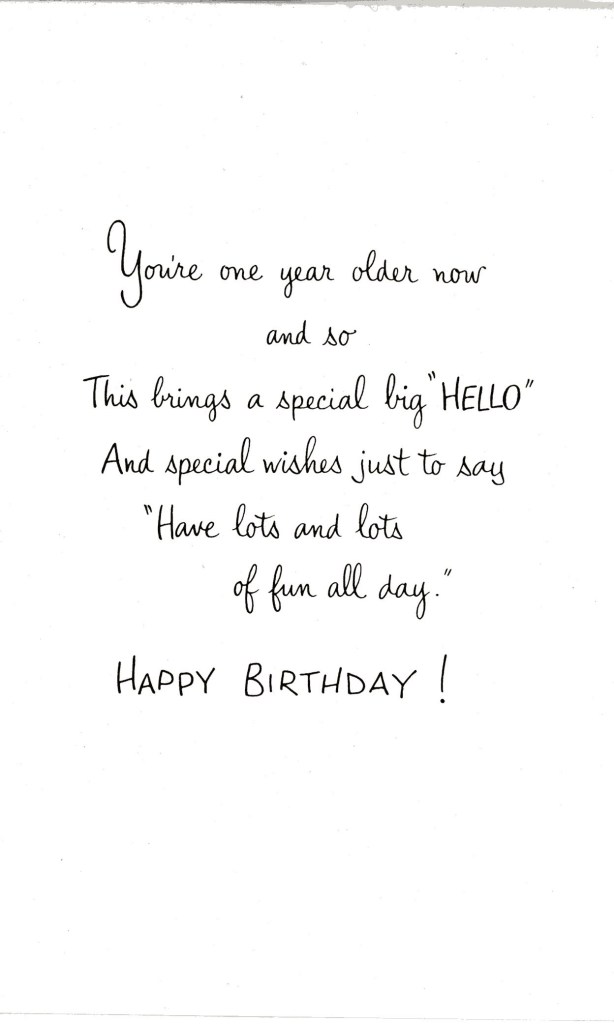 You're one year older now
and so
This brings a special big "HELLO"
And special wishes just to say
"Have lots and lots
of fun all day."
HAPPY BIRTHDAY !